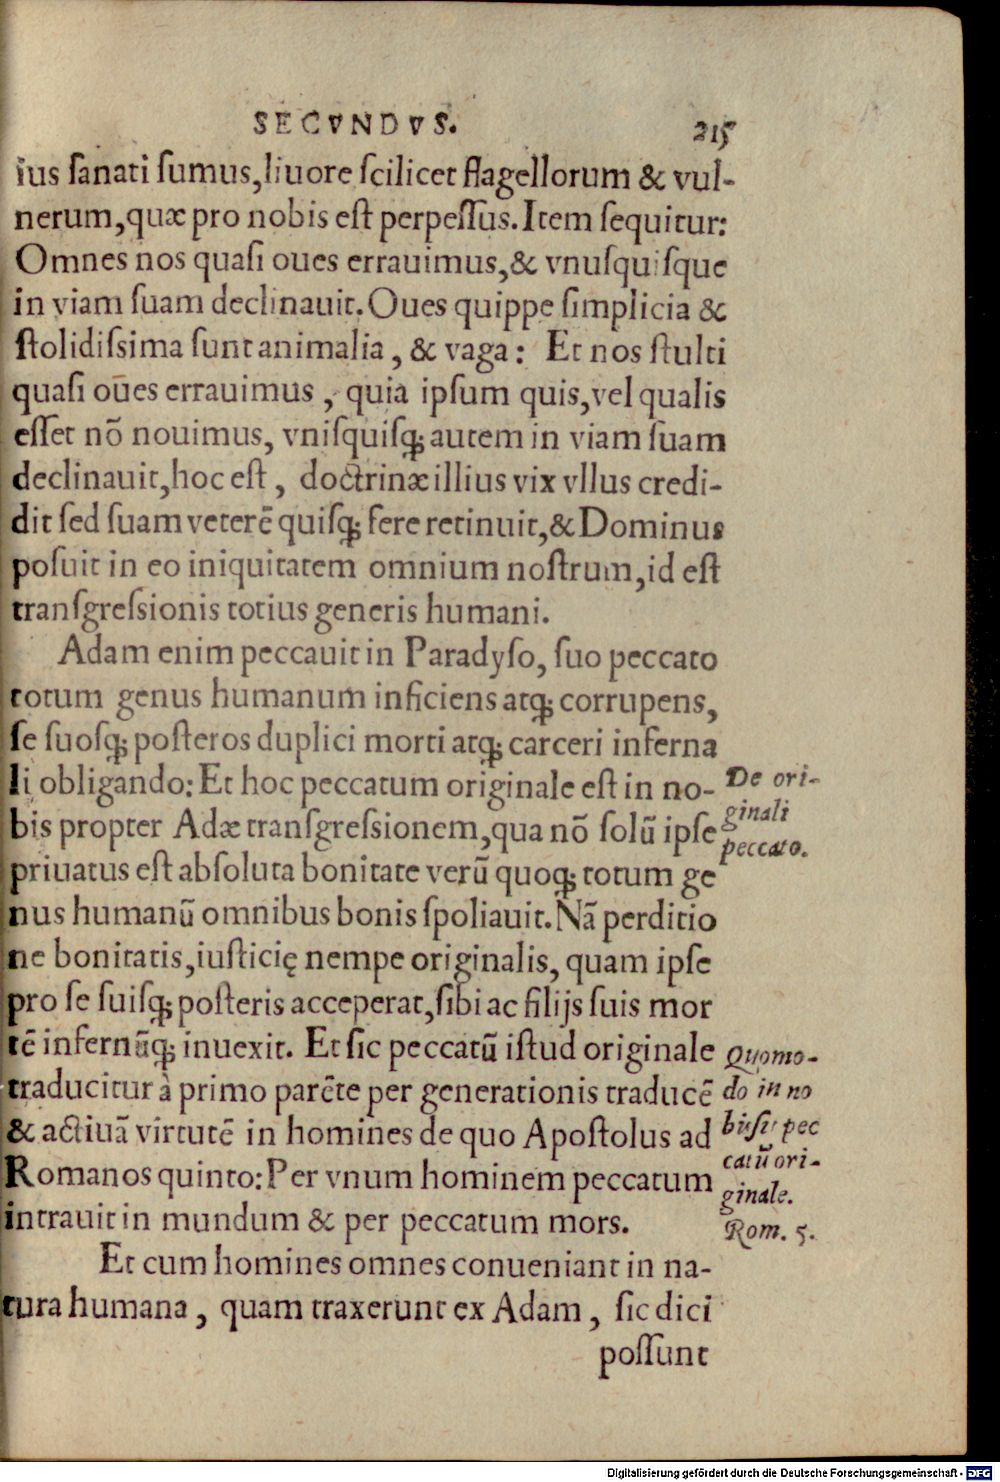 SECVNDVS. 215
ius sanati sumus, liuore scilicet flagellorum & vul-
nerum, quæ pro nobis est perpessus. Item sequitur:
Omnes nos quasi oues errauimus, & vnusquisque
in viam suam declinauit. Oues quippe simplicia &
stolidissima sunt animalia, & vaga: Et nos stulti
quasi oūes errauimus, quia ipsum quis, vel qualis
esset nō nouimus, vnisquisq; autem in viam suam
declinauit, hoc est, doctrinæ illius vix vllus credi-
dit sed suam veterē quisq; fere retinuit, & Dominus
posuit in eo iniquitatem omnium nostrum, id est
transgressionis totius generis humani.
Adam enim peccauit in Paradyso, suo peccato
totum genus humanum inficiens atq; corrupens,
se suosq; posteros duplici morti atq; carceri inferna
li obligando: Et hoc peccatum originale est in no-
De ori-
bis propter Adæ transgressionem, qua nō solū ipse
ginali
peccato.
priuatus est absoluta bonitate verū quoq; totum ge
nus humanū omnibus bonis spoliauit. Nā perditio
ne bonitatis, iusticię nempe originalis, quam ipse
pro se suisq; posteris acceperat, sibi ac filijs suis mor
tē infernūq; inuexit. Et sic peccatū istud originale
Quomo-
traducitur à primo parēte per generationis traducē
do in no
& actiuā virtutē in homines de quo Apostolus ad
bis sit pec
Romanos quinto: Per vnum hominem peccatum
catū ori-
ginale.
intrauit in mundum & per peccatum mors.
Rom. 5.
Et cum homines omnes conueniant in na-
tura humana, quam traxerunt ex Adam, sic dici
possunt
Digitalisierung gefördert durch die Deutsche Forschungsgemeinschaft - DFG